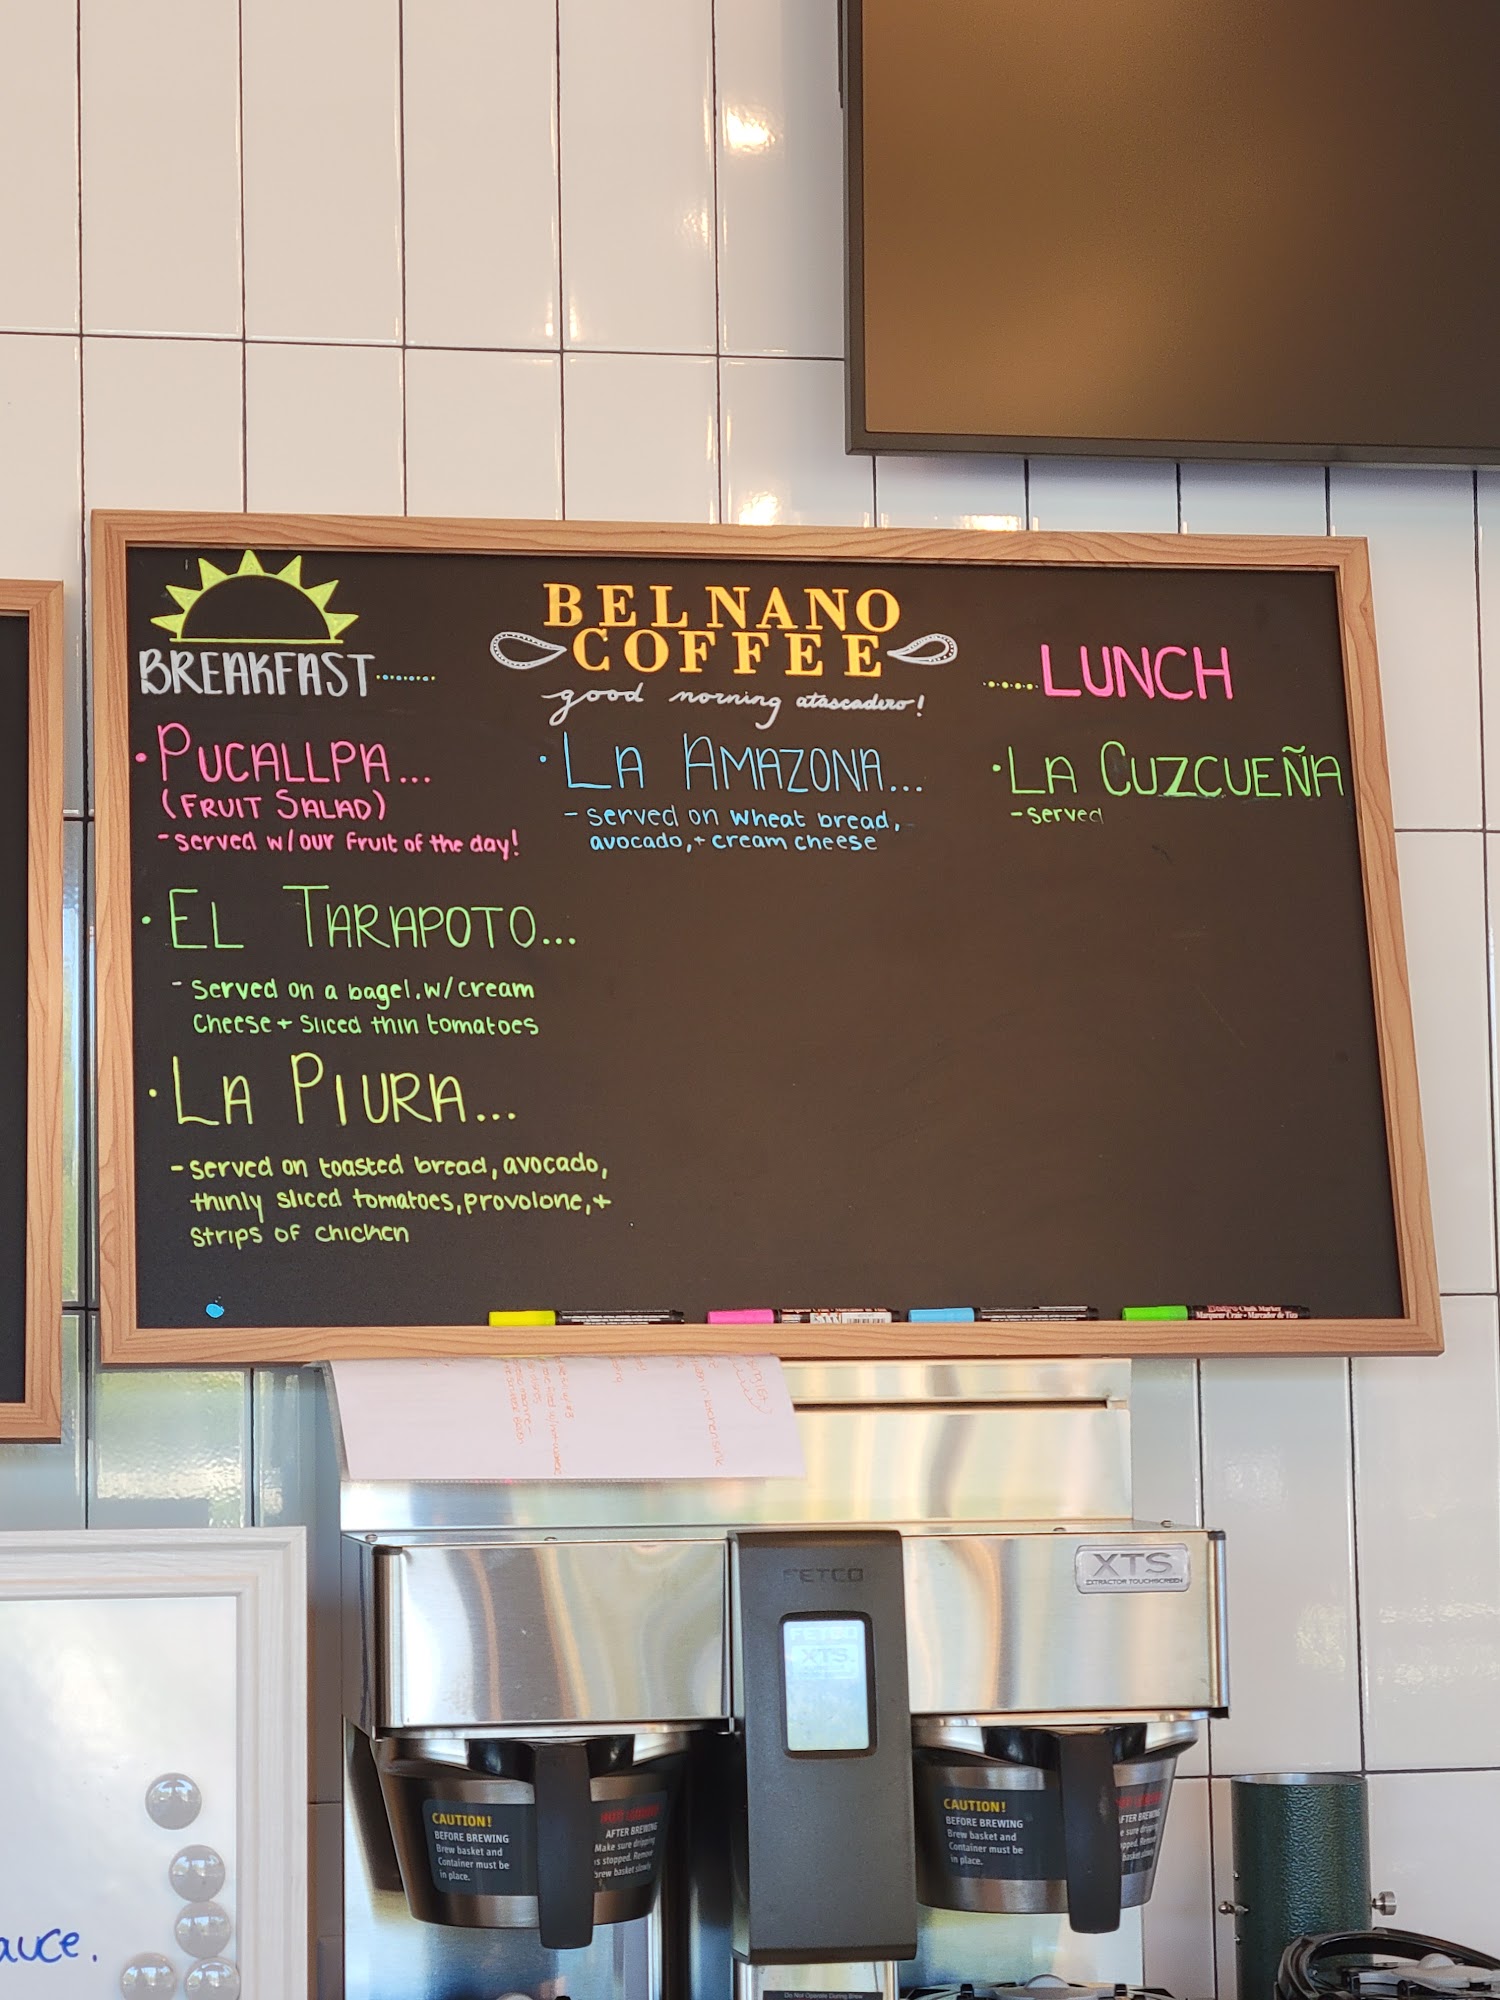 BREAKFAST
• PUCALLPA...
(FRUIT SALAD)
- served w/our fruit of the day!
• EL TARAPOTO...
- served on a bagel. w/cream
cheese + sliced thin tomatoes
• LA PIURA...
- served on toasted bread, avocado,
thinly sliced tomatoes, provolone, +
strips of chicken
BELNANO
COFFEE
good morning atascadero!
• LA AMAZONA...
- served on wheat bread,
avocado, + cream cheese
LUNCH
• LA CUZCUEÑA
- served
XTS
EXTRACTOR TOUCHSCREEN
FETCO
FETCO
XTS
CAUTION!
BEFORE BREWING
Brew basket and
Container must be
in place.
AFTER BREWING
Make sure dripping
stopped. Remove
brew basket slowly.
CAUTION!
BEFORE BREWING
Brew basket and
Container must be
in place.
AFTER BREWING
Do Not Operate During Brew